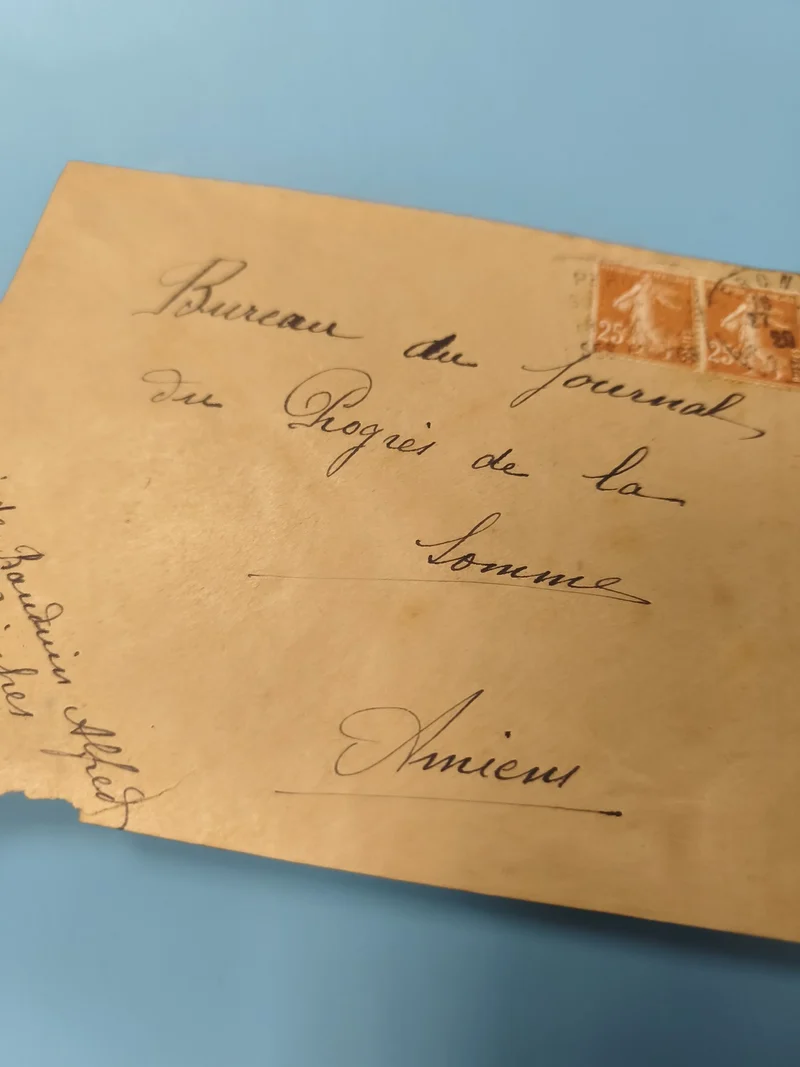 Bureau du Journal
du Progrès de la
Somme
Amiens
de Bauduin Alfred
25
25